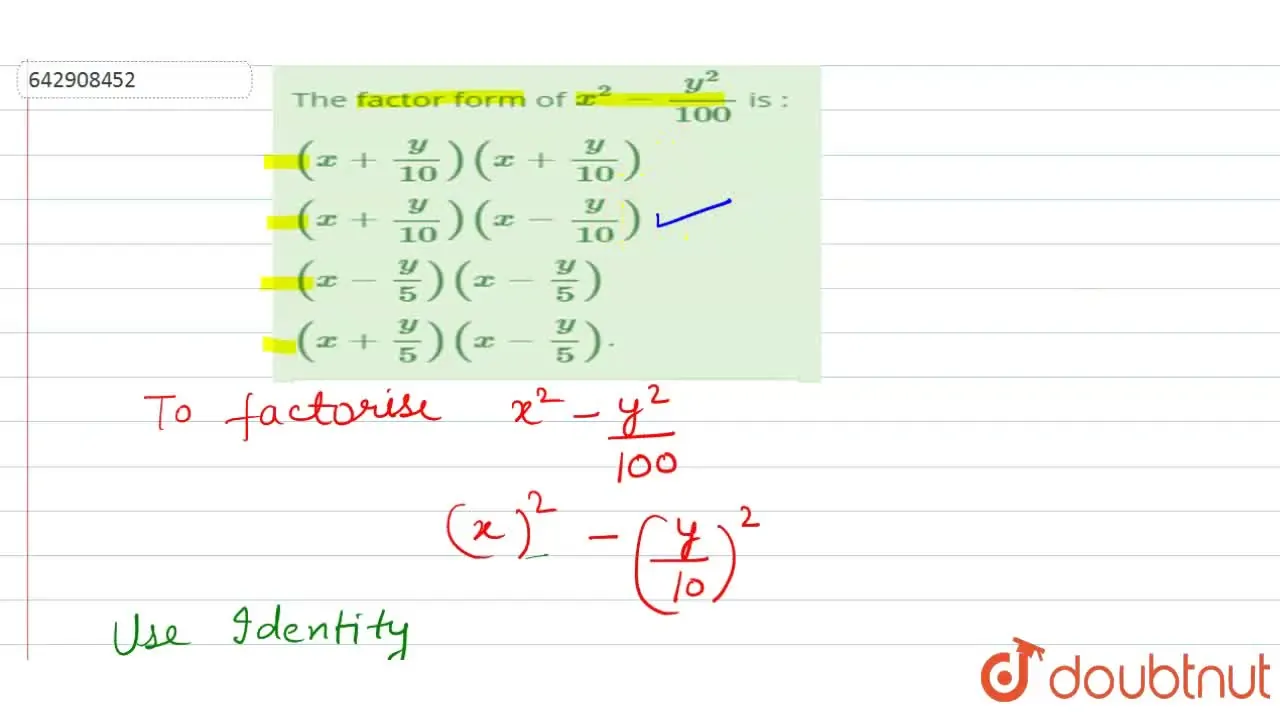 642908452
The factor form of x² − y²/100 is :
(x + y/10)(x + y/10)
(x + y/10)(x − y/10)
(x − y/5)(x − y/5)
(x + y/5)(x − y/5).
To factorise x² − y²/100
(x)² − (y/10)²
Use Identity
doubtnut